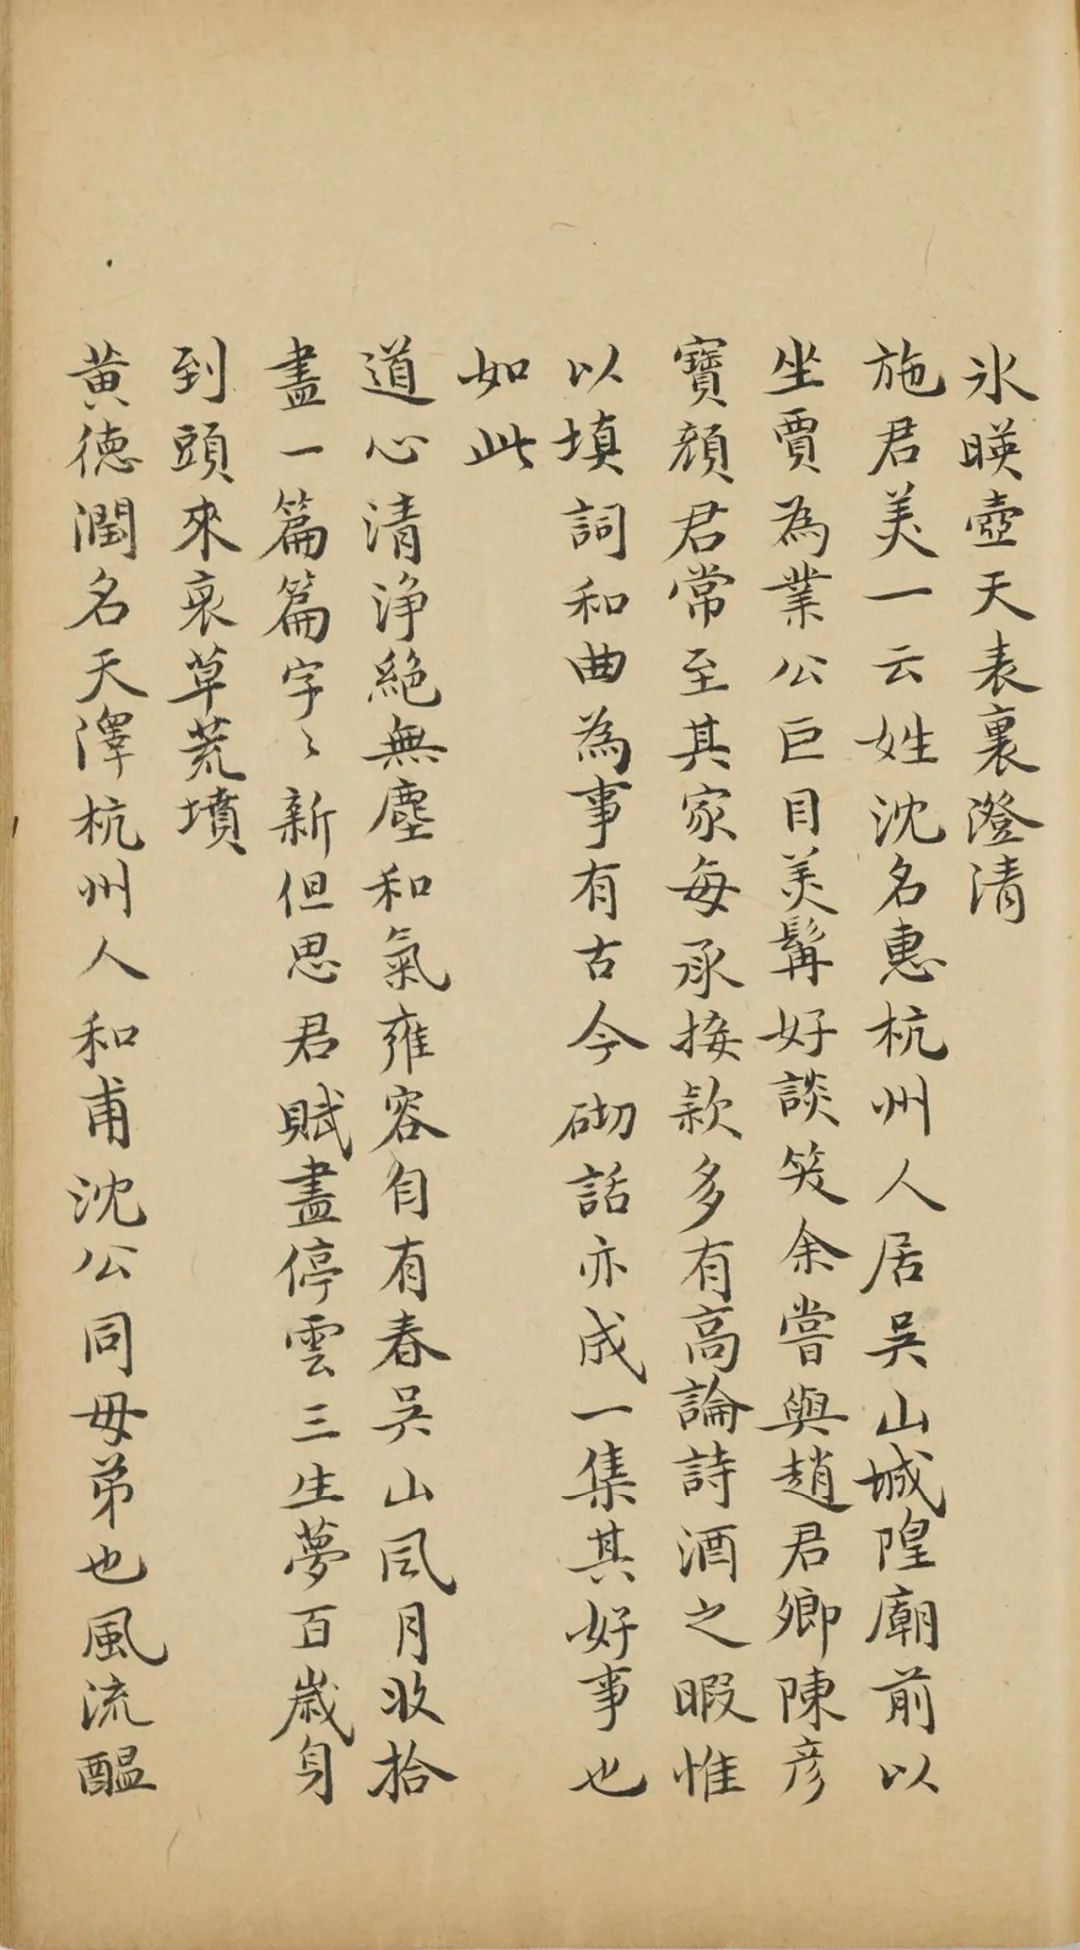 氷暎壺天表裏澄清
施君美一云姓沈名惠杭州人居吳山城隍廟前以
坐賈為業公巨目美髯好談笑余嘗與趙君卿陳彥
寶顏君常至其家每承接款多有高論詩酒之暇惟
以填詞和曲為事有古今砌話亦成一集其好事也
如此
道心清淨絕無塵和氣雍容自有春吳山风月收拾
盡一篇篇字〻新但思君賦盡停雲三生夢百歲身
到頭來衰草荒墳
黃德潤名天澤杭州人和甫沈公同母弟也風流醞